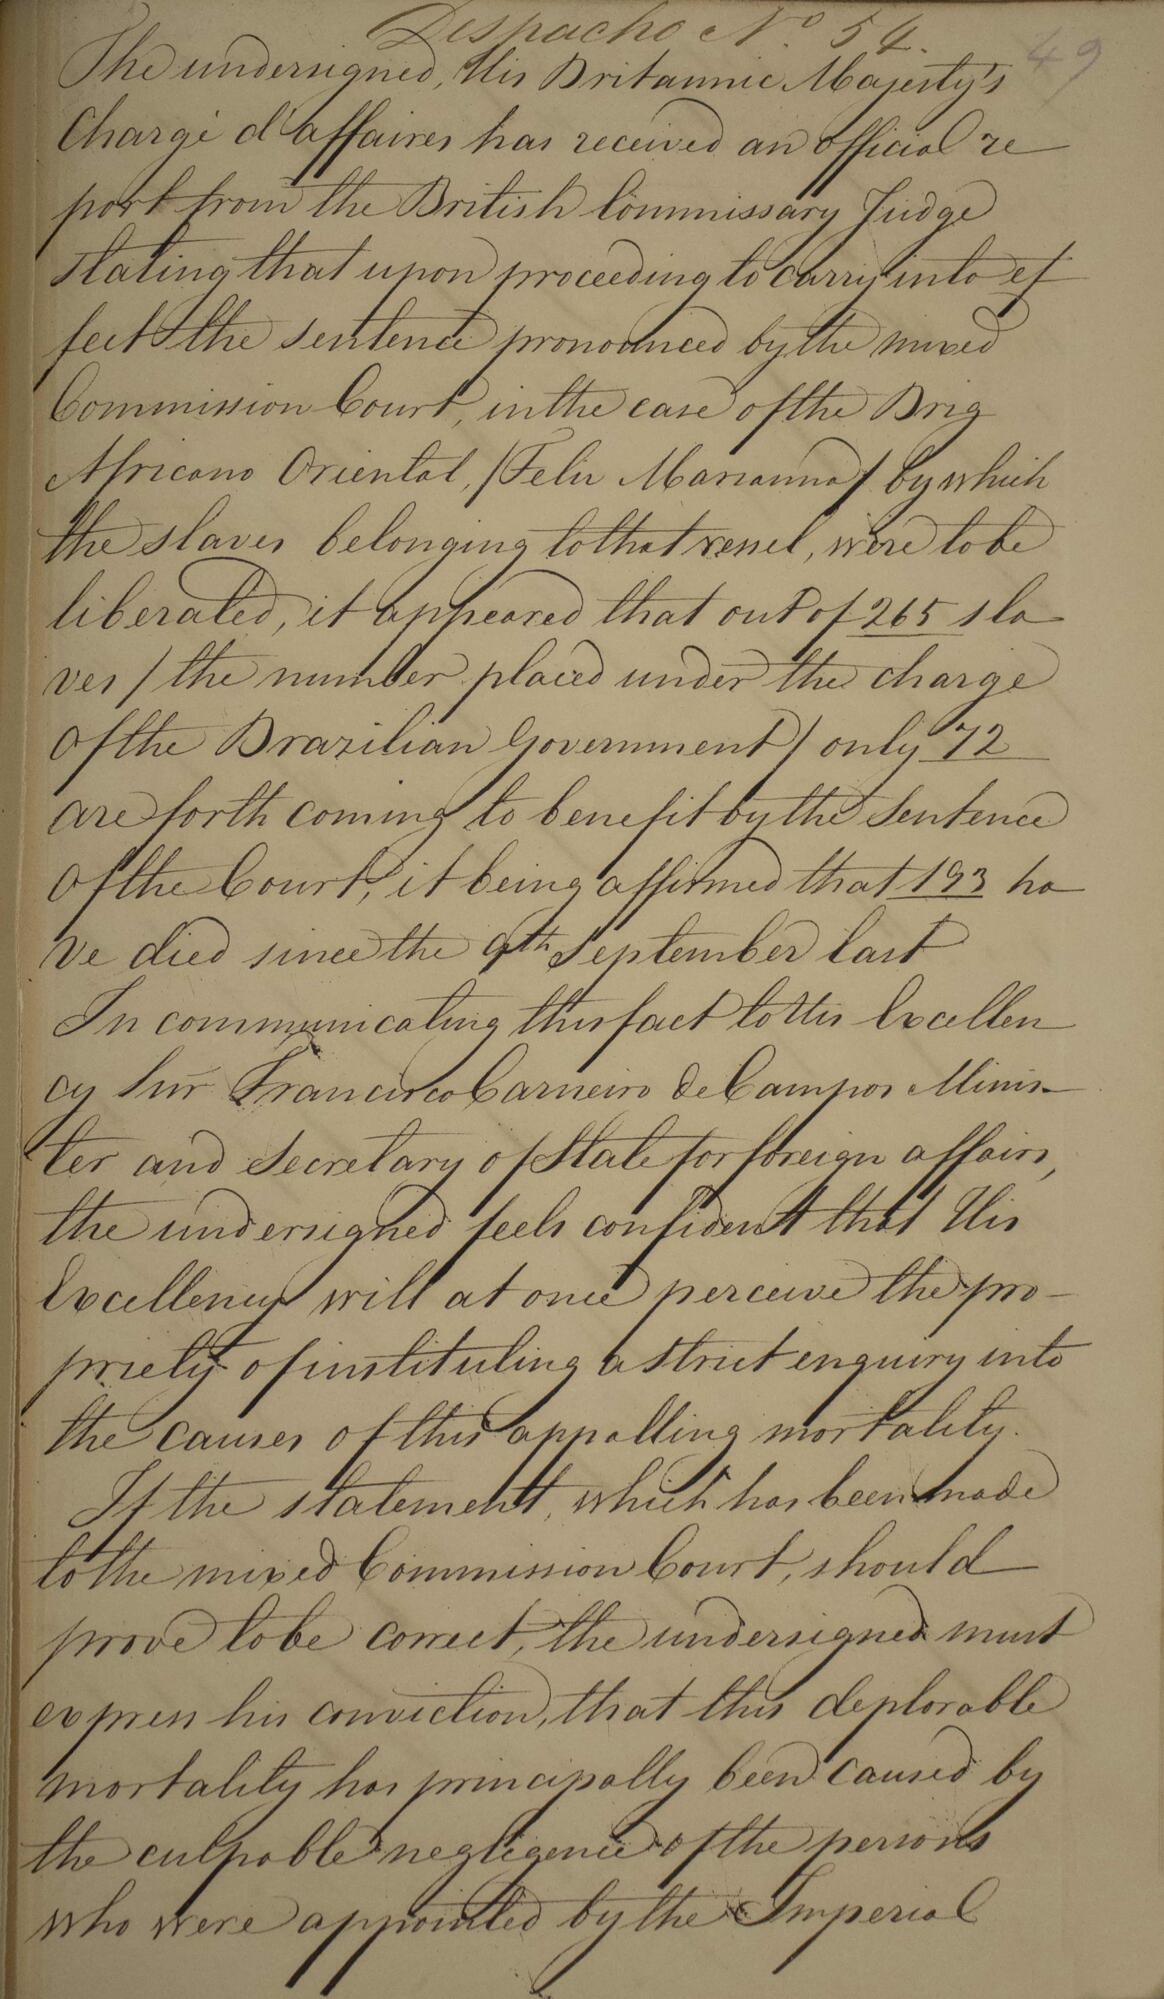 Despacho N.o 54.
49
The undersigned, His Britannic Majesty's
Chargé d'affaires has received an official re
port from the British Commissary Judge
stating that upon proceeding to carry into ef
fect the sentence pronounced by the mixed
Commission Court, in the case of the Brig
Africano Oriental, /Feliz Marianna/ by which
the slaves belonging to that vessel, were to be
liberated, it appeared that out of 265 sla
ves / the number placed under the charge
of the Brazilian Government / only 72
are forth coming to benefit by the Sentence
of the Court, it being affirmed that 193 ha
ve died since the 9th September last
In communicating this fact to His Excellen
cy Snr Francisco Carneiro de Campos Minis-
ter and Secretary of State for foreign affairs,
the undersigned feels confident that His
Excellency will at once perceive the pro-
priety of instituting a strict enquiry into
the causes of this appalling mortality.
If the statement, which has been made
to the mixed Commission Court, should
prove to be correct, the undersigned must
express his conviction, that this deplorable
mortality has principally been caused by
the culpable negligence of the persons
who were appointed by the Imperial